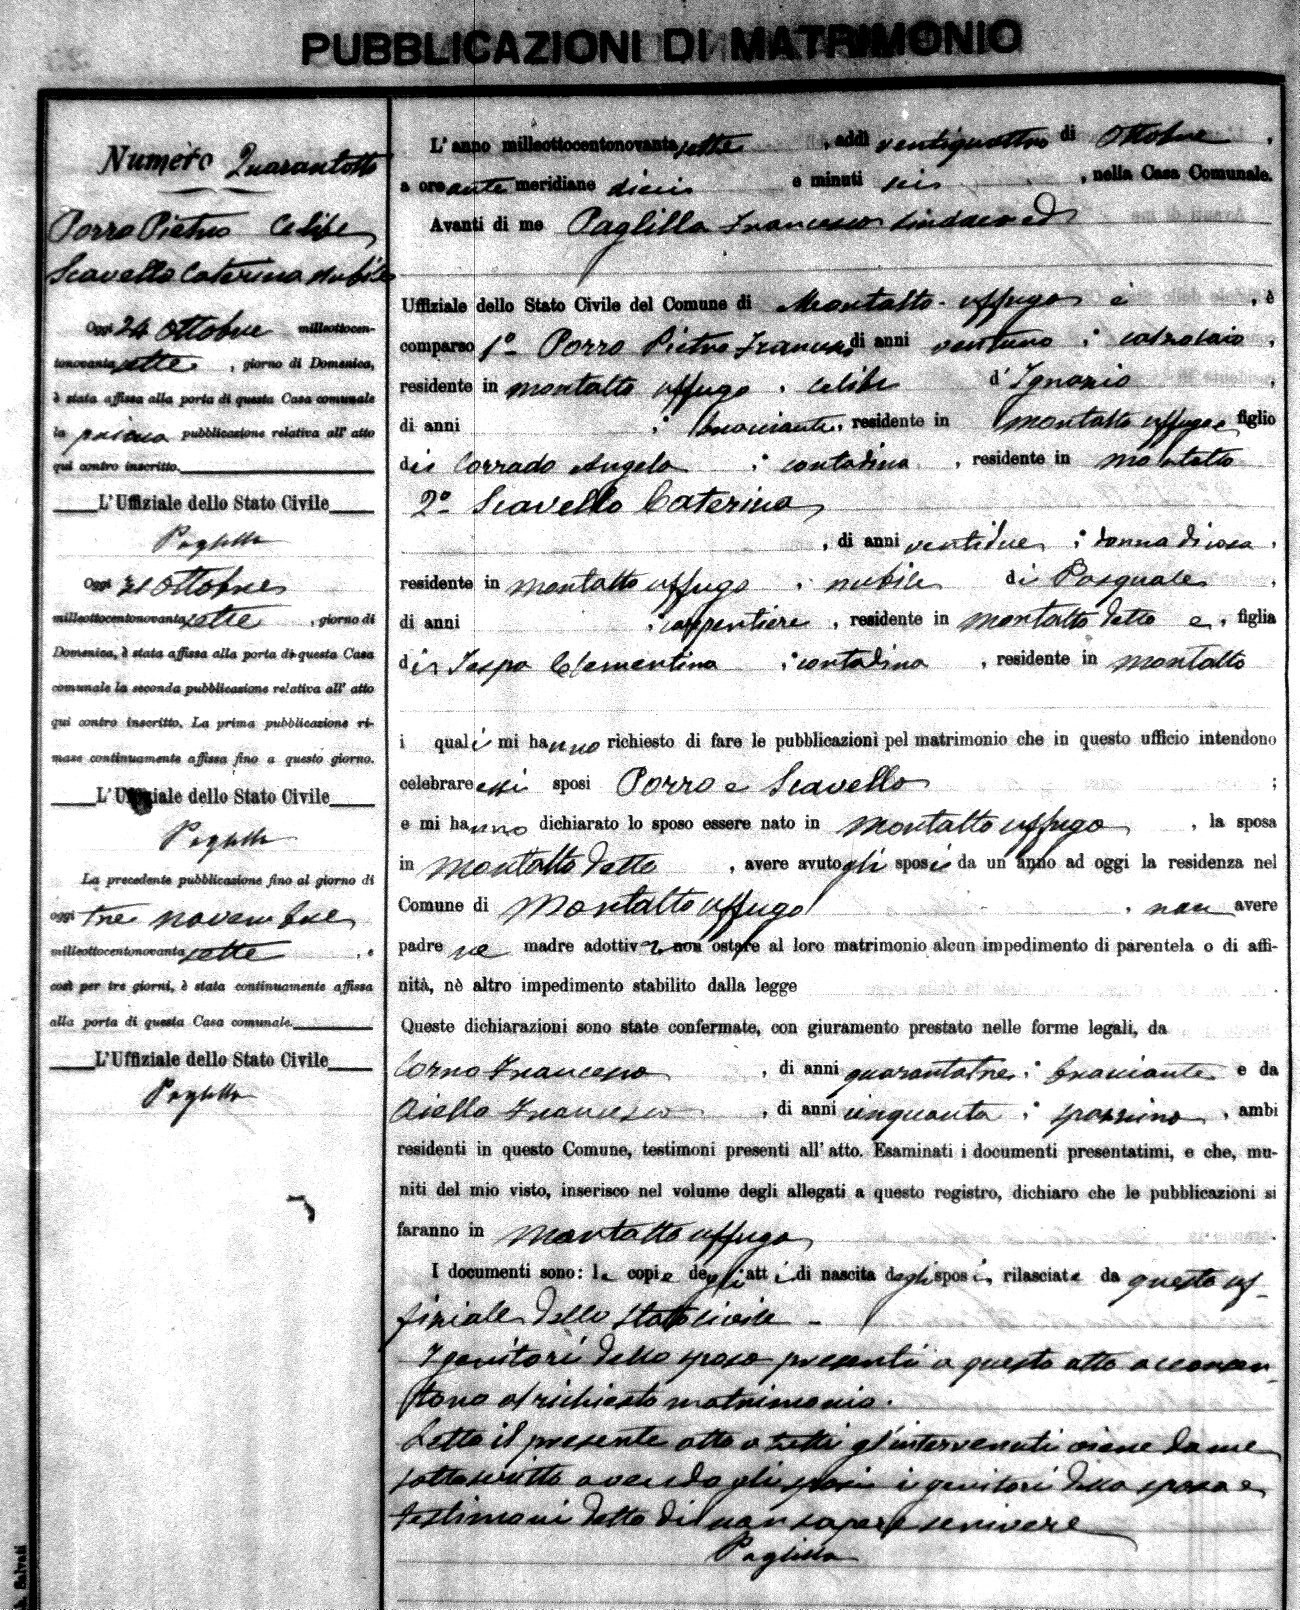 PUBBLICAZIONI DI MATRIMONIO
Numero Quarantotto
Porro Pietro Celibe
Scavello Caterina nubile
Oggi 24 Ottobre milleottocen-
tonovantasette, giorno di Domenica,
è stata affissa alla porta di questa Casa comunale
la prima pubblicazione relativa all' atto
qui contro inscritto.
L'Uffiziale dello Stato Civile
Paglilla
Oggi 31 Ottobre
milleottocentonovantasette, giorno di
Domenica, è stata affissa alla porta di questa Casa
comunale la seconda pubblicazione relativa all' atto
qui contro inscritto. La prima pubblicazione ri-
mase continuamente affissa fino a questo giorno.
L'Uffiziale dello Stato Civile
Paglilla
La precedente pubblicazione fino al giorno di
oggi tre novembre
milleottocentonovantasette, e
così per tre giorni, è stata continuamente affissa
alla porta di questa Casa comunale.
L'Uffiziale dello Stato Civile
Paglilla
L' anno milleottocentonovantasette, addì ventiquattro di Ottobre,
a ore ante meridiane dieci e minuti seis, nella Casa Comunale.
Avanti di me Paglilla Francesco Sindaco ed
Uffiziale dello Stato Civile del Comune di Montalto Uffugo è, è
comparso 1º Porro Pietro Francesco di anni ventuno; calzolaio,
residente in Montalto Uffugo, celibe d' Ignazio,
di anni ; bracciante, residente in Montalto Uffugo e, figlio
di Corrado Angela ; contadina, residente in Montalto
2º Scavello Caterina
, di anni ventidue ; donna di casa,
residente in Montalto Uffugo, nubile di Pasquale,
di anni ; carpentiere, residente in Montalto detto e, figlia
di Tespa Clementina ; contadina, residente in Montalto
i quali mi hanno richiesto di fare le pubblicazioni pel matrimonio che in questo ufficio intendono
celebrare essi sposi Porro e Scavello ;
e mi hanno dichiarato lo sposo essere nato in Montalto Uffugo, la sposa
in Montalto detto, avere avuto gli sposi da un anno ad oggi la residenza nel
Comune di Montalto Uffugo, non avere
padre ne madre adottivi non ostare al loro matrimonio alcun impedimento di parentela o di affi-
nità, nè altro impedimento stabilito dalla legge
Queste dichiarazioni sono state confermate, con giuramento prestato nelle forme legali, da
Corno Francesco, di anni quarantatre ; bracciante e da
Aiello Francesco, di anni cinquanta ; spazzino, ambi
residenti in questo Comune, testimoni presenti all' atto. Esaminati i documenti presentatimi, e che, mu-
niti del mio visto, inserisco nel volume degli allegati a questo registro, dichiaro che le pubblicazioni si
faranno in Montalto Uffugo
I documenti sono: le copie degli atti di nascita degli sposi, rilasciate da questo uf-
fiziale dello Stato Civile -
I genitori dello sposo presenti a questo atto acconsen-
tono al richiesto matrimonio.
Letto il presente atto a tutti gl'intervenuti viene da me
sottoscritto avendo gli sposi i genitori dello sposo e
testimoni detto di non sapere scrivere
Paglilla
Salvati